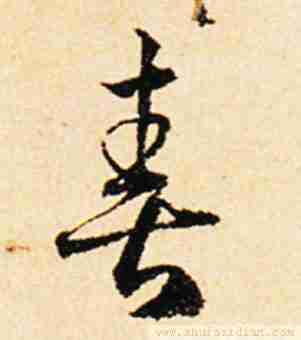 喜
www.shufazidian.com